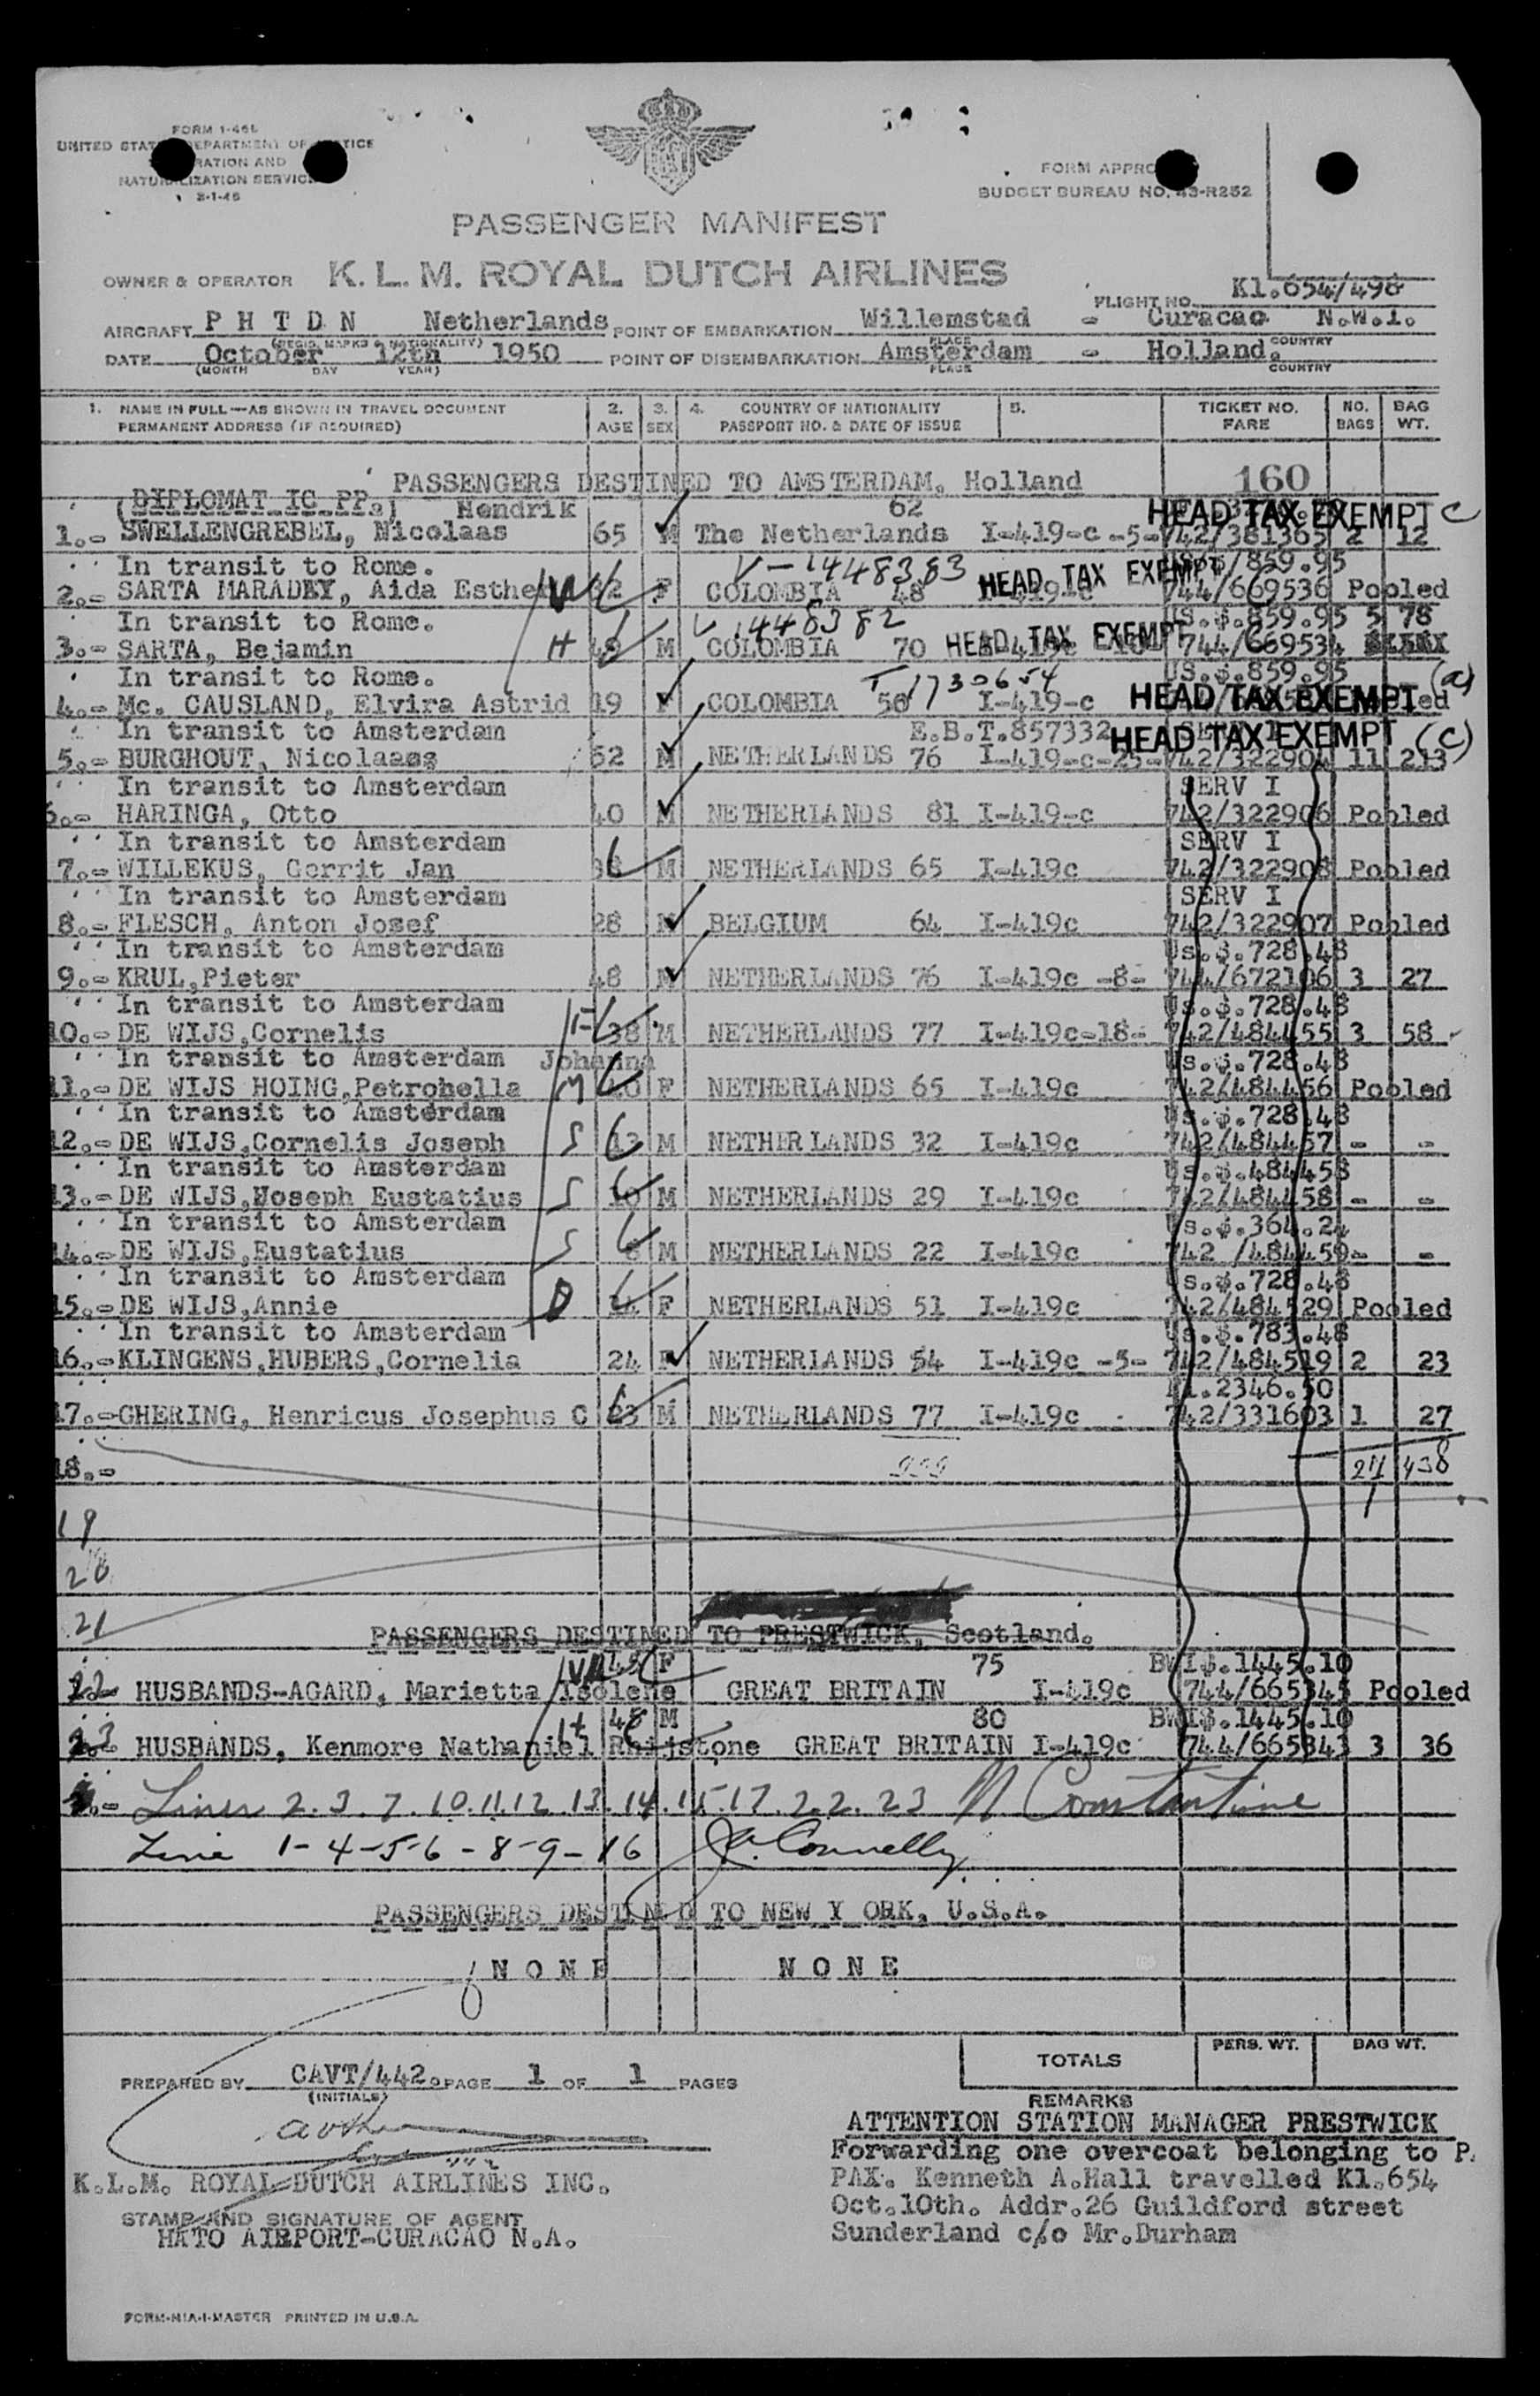 FORM I-466
UNITED STATES DEPARTMENT OF JUSTICE
RATION AND
NATURALIZATION SERVICE
2-1-46
FORM APPRO
BUDGET BUREAU NO. 43-R252
PASSENGER MANIFEST
OWNER & OPERATOR K. L. M. ROYAL DUTCH AIRLINES
FLIGHT NO. Kl.654/498
AIRCRAFT P H T D N Netherlands POINT OF EMBARKATION Willemstad - Curacao N.W.I.
(REGIS. MARKS & NATIONALITY) PLACE COUNTRY
DATE October 12th 1950 POINT OF DISEMBARKATION Amsterdam - Holland.
(MONTH DAY YEAR) PLACE COUNTRY
1. NAME IN FULL—AS SHOWN IN TRAVEL DOCUMENT 2. 3. 4. COUNTRY OF NATIONALITY 5. TICKET NO. NO. BAG
PERMANENT ADDRESS (IF REQUIRED) AGE SEX PASSPORT NO. & DATE OF ISSUE FARE BAGS WT.
PASSENGERS DESTINED TO AMSTERDAM, Holland 160
(DIPLOMAT IC PP.) Hendrik 62 HEAD TAX EXEMPT C
1.- SWELLENGREBEL, Nicolaas 65 M The Netherlands I-419-c -5- 742/381365 2 12
In transit to Rome. V-1448383 HEAD TAX EXEMPT US.$/859.95
2.- SARTA MARADEY, Aida Esther F COLOMBIA 48 744/669536 Pooled
In transit to Rome. V 1448382 US.$.859.95 5 78
3.- SARTA, Bejamin H M COLOMBIA 70 HEAD TAX EXEMPT 744/669534
In transit to Rome. T 1730654 US.$.859.95
4.- Mc. CAUSLAND, Elvira Astrid 19 F COLOMBIA 56 I-419-c HEAD TAX EXEMPT (a)
In transit to Amsterdam E.B.T.857332 HEAD TAX EXEMPT (c)
5.- BURGHOUT, Nicolaas 52 M NETHERLANDS 76 I-419-c-25- 742/322904 11 213
In transit to Amsterdam SERV I
6.- HARINGA, Otto 40 M NETHERLANDS 81 I-419-c 742/322906 Pooled
In transit to Amsterdam SERV I
7.- WILLEKUS, Gerrit Jan M NETHERLANDS 65 I-419c 742/322908 Pooled
In transit to Amsterdam SERV I
8.- FLESCH, Anton Josef 28 M BELGIUM 64 I-419c 742/322907 Pooled
In transit to Amsterdam Us.$.728.48
9.- KRUL,Pieter 48 M NETHERLANDS 76 I-419c -8- 744/672106 3 27
In transit to Amsterdam Us.$.728.48
10.- DE WIJS,Cornelis 38 M NETHERLANDS 77 I-419c-18- 742/484455 3 58
In transit to Amsterdam Johanna Us.$.728.48
11.- DE WIJS HOING,Petronella M F NETHERLANDS 65 I-419c 742/484456 Pooled
In transit to Amsterdam Us.$.728.48
12.- DE WIJS,Cornelis Joseph S 13 M NETHERLANDS 32 I-419c 742/484457 - -
In transit to Amsterdam Us.$.484458
13.- DE WIJS,Joseph Eustatius S 10 M NETHERLANDS 29 I-419c 742/484458 - -
In transit to Amsterdam Us.$.364.24
14.- DE WIJS,Eustatius S M NETHERLANDS 22 I-419c 742 /484459- -
In transit to Amsterdam Us.$.728.48
15.- DE WIJS,Annie D F NETHERLANDS 51 I-419c 742/484529 Pooled
In transit to Amsterdam Us.$.783.48
16.- KLINGENS,HUBERS,Cornelia 24 F NETHERLANDS 54 I-419c -5- 742/484519 2 23
Fl.2346.50
17.- GHERING, Henricus Josephus C 23 M NETHERLANDS 77 I-419c 742/331603 1 27
18.- 438
19
20
21
PASSENGERS DESTINED TO PRESTWICK, Scotland.
45 F 75 BWI$.1445.10
22 HUSBANDS-AGARD, Marietta Isolene GREAT BRITAIN I-419c 744/665345 Pooled
48 M 80 BWI$.1445.10
23 HUSBANDS, Kenmore Nathaniel GREAT BRITAIN I-419c 744/665343 3 36
Lines 2.3.7.10.11.12.13.14.15.17.22.23 N Constantine
Line 1-4-5-6-8-9-16 Ja. Connelly
PASSENGERS DESTINED TO NEW Y ORK, U.S.A.
N O N E N O N E
TOTALS PERS. WT. BAG WT.
PREPARED BY CAVT/442. PAGE 1 OF 1 PAGES
(INITIALS)
REMARKS
ATTENTION STATION MANAGER PRESTWICK
Forwarding one overcoat belonging to P.
K.L.M. ROYAL DUTCH AIRLINES INC.
PAX. Kenneth A.Hall travelled Kl.654
STAMP AND SIGNATURE OF AGENT
Oct.10th. Addr.26 Guildford street
HATO AIRPORT-CURACAO N.A.
Sunderland c/o Mr.Durham
FORM-NIA-I-MASTER PRINTED IN U.S.A.